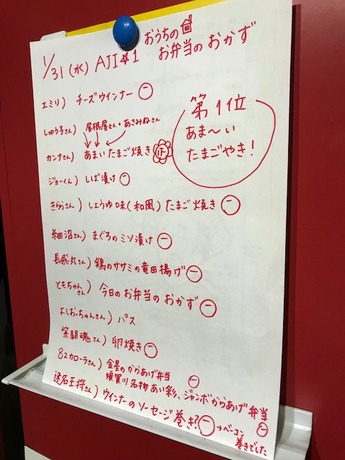 1/31(水) AJI★1 おうちの
お弁当のおかず
エミリ) チーズウインナー ㊀
しゅうすさん) 屋根屋さん・あさみねさん
カンナさん) あまい たまご焼き 正
第1位
あま〜い
たまごやき!
ジョーイん) しば漬け ㊀
きららさん) しょうゆ味(和風)たまご焼き ㊀
和田沼さん) まぐろのミソ漬け ㊀
長飛丸さん) 鶏のササミの竜田揚げ ㊀
ともちゃんさん) 今日のお弁当のおかず ㊀
よしおっちゃんさん) パス
築闘魂さん) 卵焼き ㊀
82カローラさん) 金星のからあげ弁当 ㊀
須賀川名物 あい彩り、ジャンボからあげ弁当 ㊀
達磨王将さん) ウインナーのソーセージ巻き! ㊀→ベーコン
巻きでした